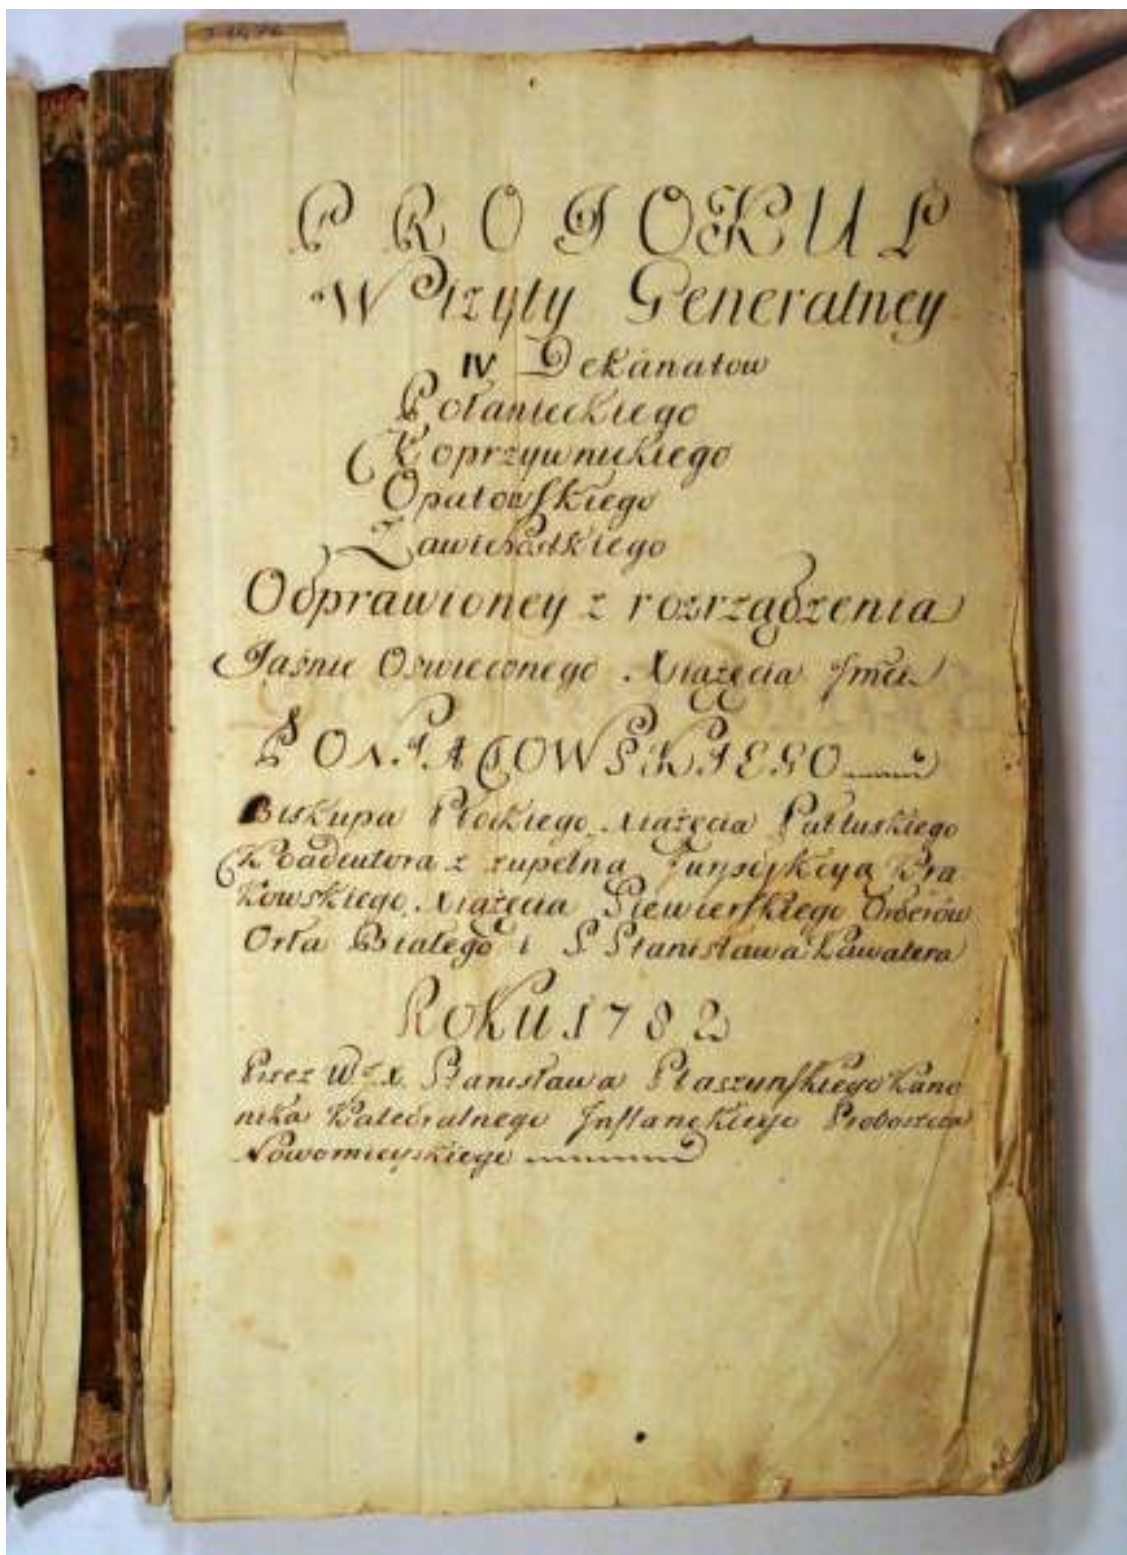 PROTOKUŁ
Wizyty Generalney
IV Dekanatow
Połanieckiego
Koprzywnickiego
Opatowskiego
Zawichostkiego
Odprawioney z rozrządzenia
Jaśnie Oswieconego Xiążęcia Jmci
PONIATOWSKIEGO
Biskupa Płockiego Xiążęcia Pułtuskiego
Koadeutora z zupełną Juryzdykcyą Kra
kowskiego, Xiążęcia Siewierskiego Orderów
Orła Białego i S Stanisława Kawalera
ROKU 1782
Przez W X. Stanisława Ptaszyńskiego Kano
nika Katedralnego Inflanckiego Proboszcza
Nowomieyskiego